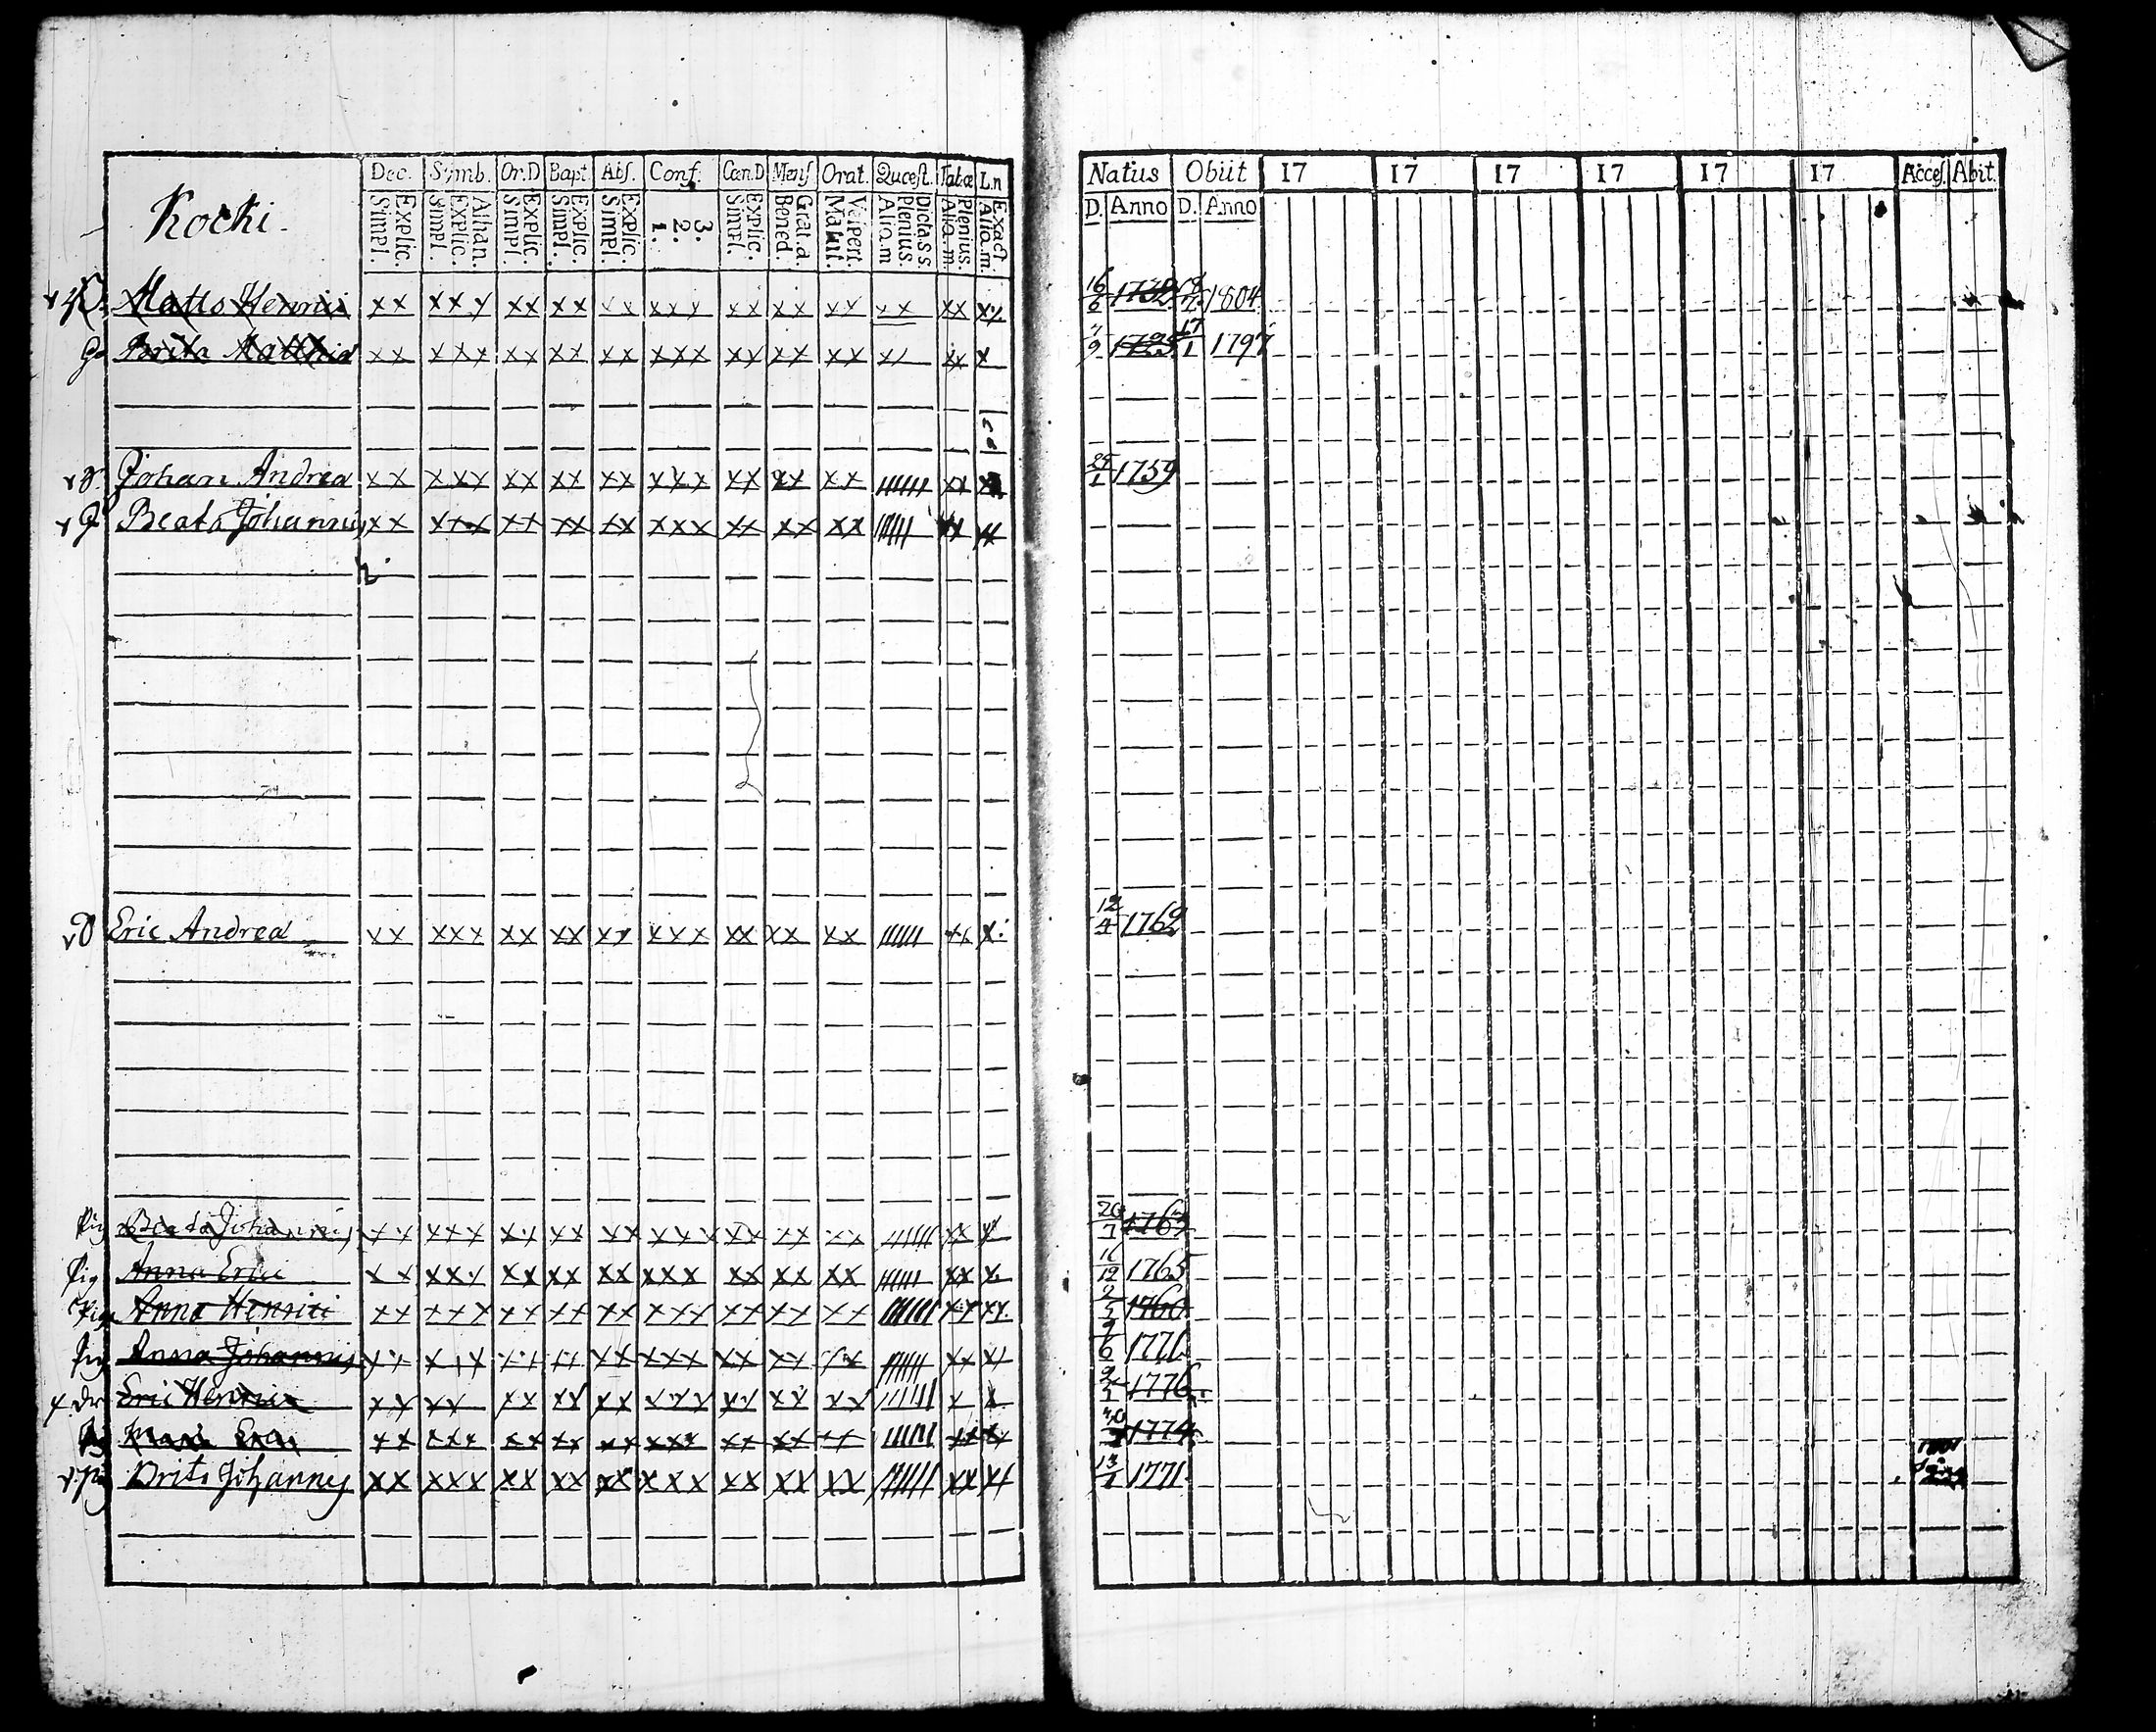 Kocki.
Dec. Symb. Or.D Bapt. Abs. Conf. Cœn.D Mens Orat. Quæst. Tabæ L.n
Explic. Simpl. Athan. Explic. Simpl. Explic. Simpl. Explic. Simpl. Explic. Simpl. 3. 2. 1. Explic. Simpl. Grat.a. Bened. Vespert. Matut. Dicta S.S. Plenius. Aliq.m Plenius. Aliq.m Exact Aliq.m.
Natus Obiit 17 17 17 17 17 17 Acces. Abit.
D. Anno D. Anno
Matts Henrici xx xxx xx xx xx xxx xx xx xx xx xx 16/6 1732 1804
Brita Matthiæ xx xxx xx xx xx xxx xx xx xx xx x 17/1 1797
Johan Andreæ xx xxx xx xx xx xxx xx xx xx |||||| xx 25/1 1759
Beata Johannis xx xxx xx xx xx xxx xx xx xx xx xx
Eric Andreæ xx xxx xx xx xx xxx xx xx xx |||||| x 12/4 1762
Pig Beata Johannis xx xxx xx xx xx xxx xx xx xx |||||| xx x 20/7 1763
Pig Anna Erici xx xxx xx xx xx xxx xx xx xx |||||| xx x 1765
Anna Henrici xx xxx xx xx xx xxx xx xx xx xx xx 1760
Anna Johannis xx xxx xx xx xx xxx xx xx xx |||||| xx xx 9/6 1771
dr Eric Henrici xx xx xx xx xx xxx xx xx xx x x 1776
Maria Erici xx xxx xx xx xx xxx xx xx xx xx 1774
Brita Johannis xx xxx xx xx xx xxx xx xx xx xx xx 1771 1801